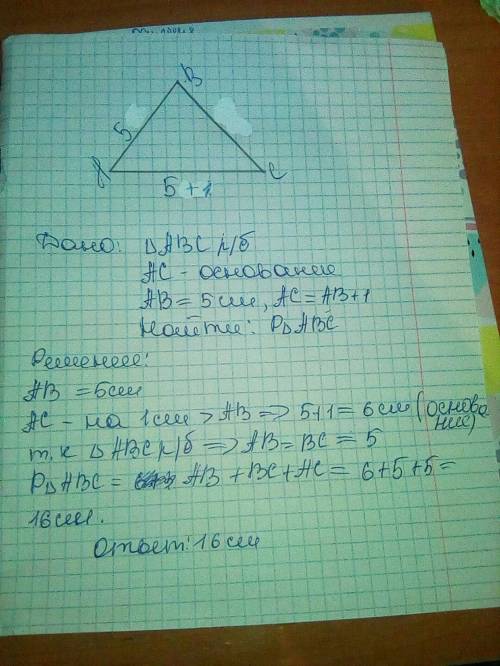 В
5
А
С
5+1
Дано: △ABC р/б
AC - основание
AB = 5 см, AC = AB+1
Найти: P△ABC
Решение:
AB = 5 см
AC - на 1 см > AB => 5+1 = 6 см (основание)
т.к △ABC р/б => AB = BC = 5
P△ABC = AB + BC + AC = 6+5+5 =
16 см.
Ответ: 16 см